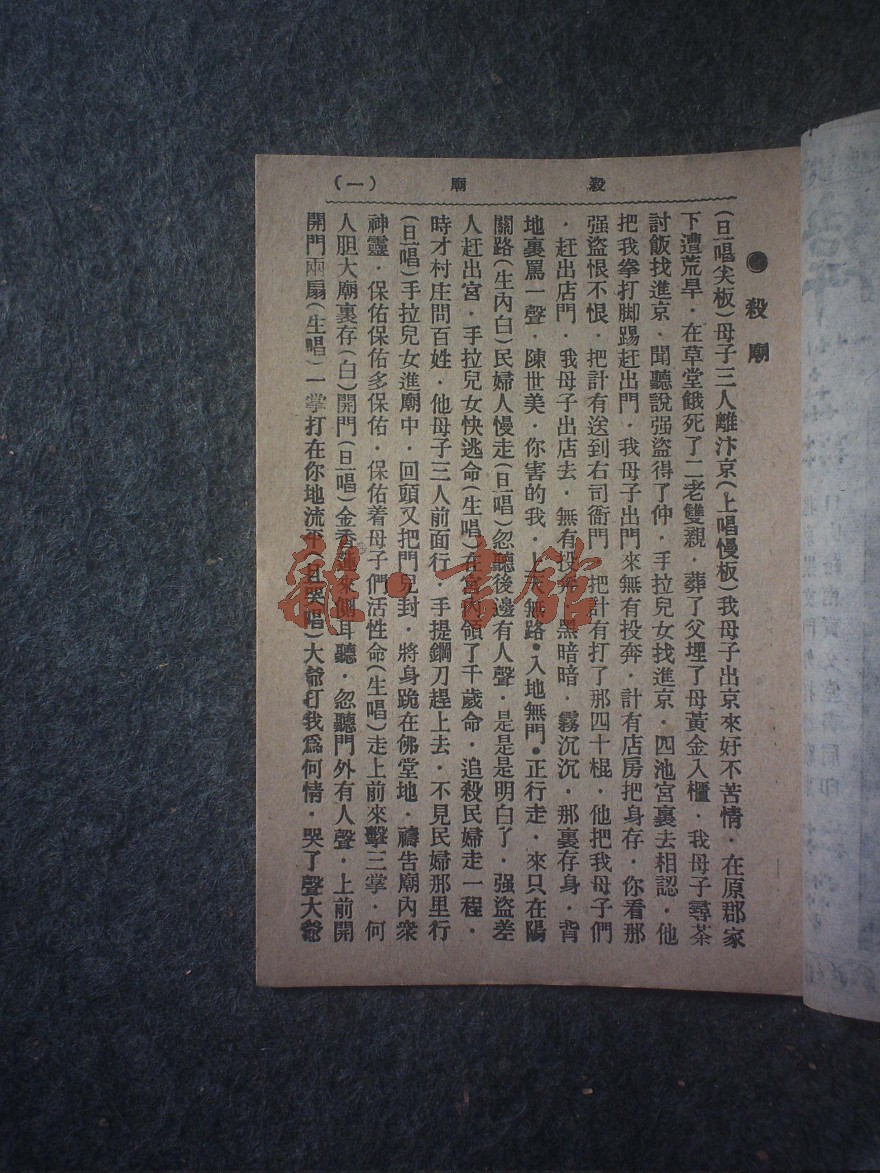 殺　廟　(一)
●殺廟
(旦唱尖板)母子三人離汴京(上唱慢板)我母子出京來好不苦情．在原郡家
下遭荒旱．在草堂餓死了二老雙親．葬了父埋了母黃金入櫃．我母子尋茶
討飯找進京．聞聽說强盜得了仲．手拉兒女找進京．四池宮裏去相認．他
把我拳打脚踢赶出門．我母子出門來無有投奔．計有店房把身存．你看那
强盜恨不恨．把計有送到右司衙門．把計有打了那四十棍．他把我母子們
．赶出店門．我母子出店去．無有投奔．黑暗暗．霧沉沉．那裏存身．背
地裏罵一聲．陳世美．你害的我．上天無路●入地無門●正行走．來只在陽
關路(生內白)民婦人慢走(旦唱)忽聽後邊有人聲．是是是明白了．强盜差
人赶出宮．手拉兒女快逃命(生唱)在宮內領了千歲命．追殺民婦走一程．
時才村庄問百姓．他母子三人前面行．手提鋼刀趕上去．不見民婦那里行
(旦唱)手拉兒女進廟中．回頭又把門兒封．將身跪在佛堂地．禱告廟內衆
神靈．保佑保佑多保佑．保佑着母子們活性命(生唱)走上前來擊三掌．何
人胆大廟裏存(白)開門(旦唱)金香進來側耳聽．忽聽門外有人聲．上前開
開門兩扇(生唱)一掌打在你地流平(旦哭唱)大爺打我爲何情．哭了聲大爺
雜·書館